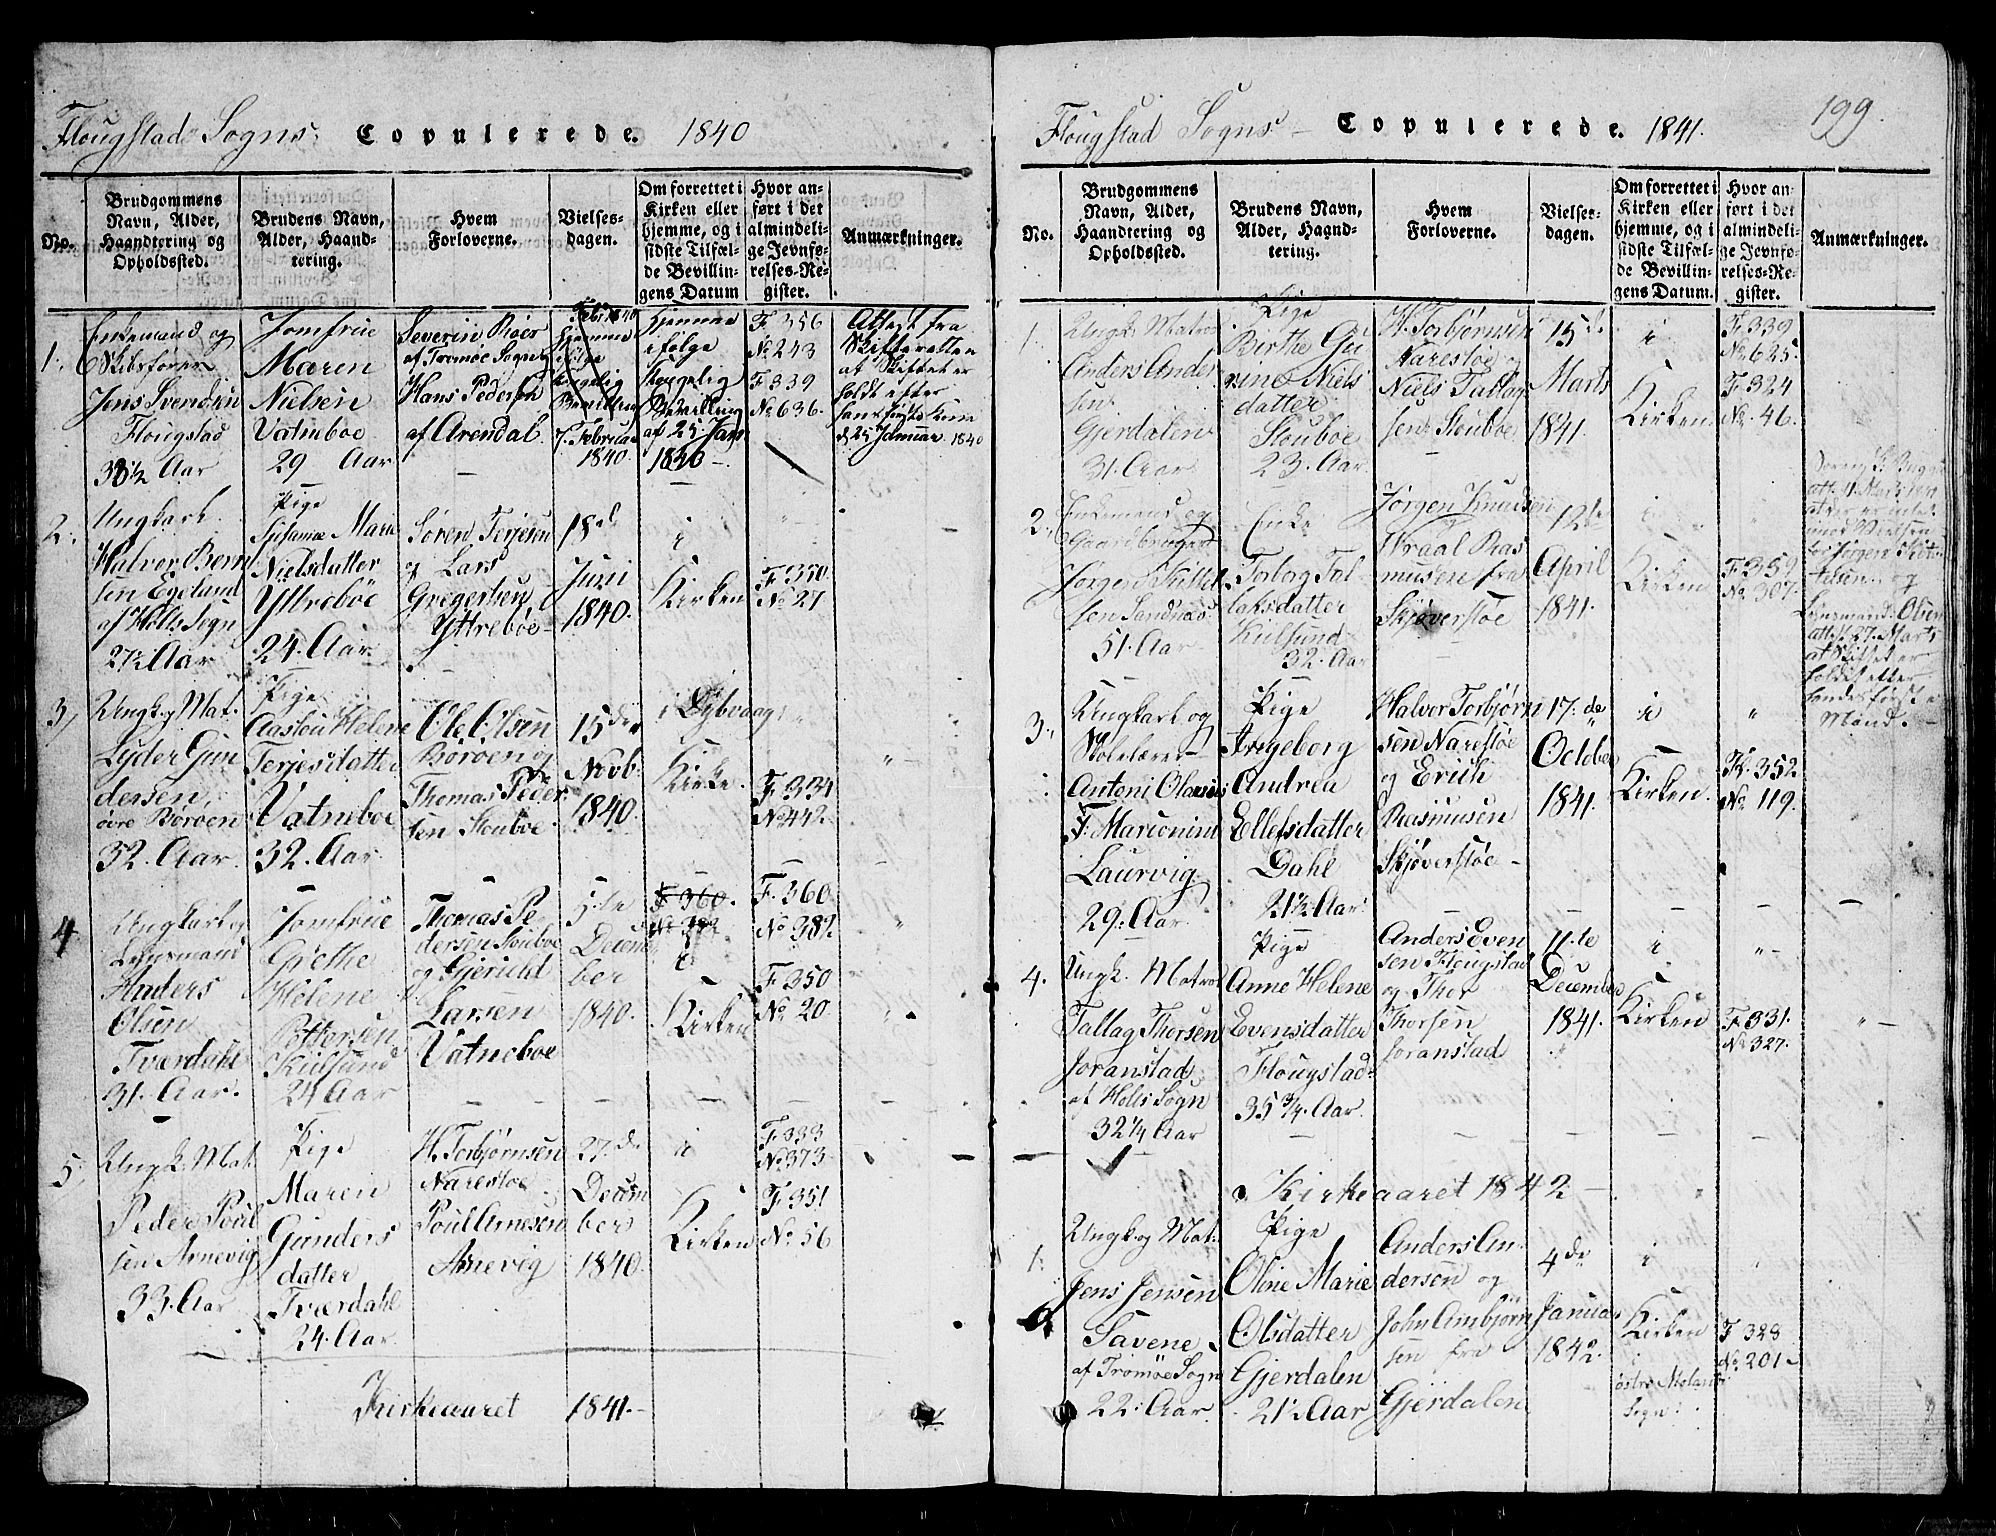 Flougstad Sogns Copulerede. 1840
No.
Brudgommens
Navn, Alder,
Haandtering og
Opholdssted.
Brudens Navn,
Alder, Haand-
tering.
Hvem
Forloverne.
Vielses-
dagen.
Om forrettet i
Kirken eller
hjemme, og i
sidste Tilfæl-
de Bevillin-
gens Datum
Hvor an-
ført i det
almindeli-
ge Jevnfø-
relses-Re-
gister.
Anmærkninger.
1.
Enkemand og
Skibsfører
Jens Svendsen
Flougstad
38½ Aar
Jomfrue
Maren
Nielsen
Vatneboe
29 Aar
Severin Röer
af Tromøe Sogn
Hans Pedersen
af Arendal
7. Februar
1840.
Hjemme
ifølge
Kongelig
Bevilling
af 25. Jan
1840
F. 356
No. 243
F. 339
No. 636.
Attest fra
Skifteretten
at Skiftet er
holdt efter
d. 25 Januar 1840
2.
Ungkarl
Halvor Bern
sen Egeland
af Holts Sogn
27½ Aar
Pige
Susanne Marie
Nielsdatter
Yttreböe
24. Aar
Søren Terjesen
og Lars
Gregersen
Yttreböe
18de
Juni
1840.
i
Kirken
F. 350
No. 27
3,
Ungk. og Mat.
Lyder Gun
dersen,
øvre Boröen
32. Aar
Pige
Aaslou Helene
Terjesdatter
Vatneboe
32. Aar
Ole Olsen
Boröen og
Thomas Peder
sen Stouboe.
15de
Novb.
1840.
i Dybvaag
Kirke.
F. 334
No. 442.
4
Ungkarl og
Lensmand
Anders
Olsen
Tværdahl
31. Aar.
Jomfrue
Grethe
Helene
Pettersen
Kiilsund
24 Aar
Thomas Pe
dersen Stouboe
og Gjeruld
Larsen
Vatneboe
5.te
Decem
ber
1840.
F. 360.
No. 382
i
Kirken
F. 360
No. 382.
F. 350
No. 20.
5.
Ungk. Mat.
Peder Poul
sen Arnevig
33. Aar
Pige
Maren
Gunders
datter
Tværdahl
24. Aar
H. Torbjørnsen
Narestoe
Poul Arnesen
Arnevig
27.de
Decem
ber
1840.
i
Kirken
F. 333
No. 373
F. 351
No. 56
Kirkeaaret 1841.
Flougstad Sogns Copulerede. 1841.
199.
No.
Brudgommens
Navn, Alder,
Haandtering og
Opholdssted.
Brudens Navn,
Alder, Haand-
tering.
Hvem
Forloverne.
Vielses-
dagen.
Om forrettet i
Kirken eller
hjemme, og i
sidste Tilfæl-
de Bevillin-
gens Datum.
Hvor an-
ført i det
almindeli-
ge Jevnfø-
relses-Re-
gister.
Anmærkninger.
1.
Ungk. Matros
Anders Ander
sen
Gjerdalen
31. Aar
Pige
Birthe Gu
rine Niels
datter
Stouboe
23. Aar
H. Torbjørnsen
Narestøe og
Niels Tallag
sen Stouboe
15de
Marts
1841.
i
Kirken
F. 339
No. 625.
F. 324
No. 46.
2.
Enkemand og
Gaardbruger
Jørgen Kittel
sen Sandnæs
51. Aar
Enke
Torborg Tal
laksdatter
Kiilsund
32. Aar
Jørgen Knudsen
og
Wraal Ras
musen fra
Skjøverstøe
12te
April
1841.
i
Kirken
F. 359
No. 307.
Lensmand Olsen
attest 27. Marts
at Skiftet er
holdet efter
hendes første
Mand.
3.
Ungkarl og
Skolelærer
Antoni Olavius
F. Marionini
Laurvig
29. Aar
Pige
Ingeborg
Andrea
Ellefsdatter
Dahl
21½ Aar
Halvor Torbjørn
sen Narestøe
og Erich
Rasmusen
Skjøverstøe
17.de
October
1841.
i
Kirken.
F. 352
No. 119.
4.
Ungk. Matros
Tallag Thorsen
Joranstad
af Holts Sogn
32¼ Aar
Pige
Anne Helene
Evensdatter
Flougstad
35¾ Aar
Anders Even
sen Flougstad
og Thor
Thorsen
Joranstad
11.te
December
1841.
i
Kirken
F. 331.
No. 327.
Kirkeaaret 1842
1.
Ungk. og Mat.
Jens Jensen
Savene
af Tromøe Sogn
22. Aar
Pige
Oline Marie
Olsdatter
Gjerdalen
21½ Aar
Anders An-
dersen og
John Ambjørn
sen fra
Gjerdalen
4de
Januar
1842.
i
Kirken
i
østre Moland
Sogn.
F. 328
No. 201